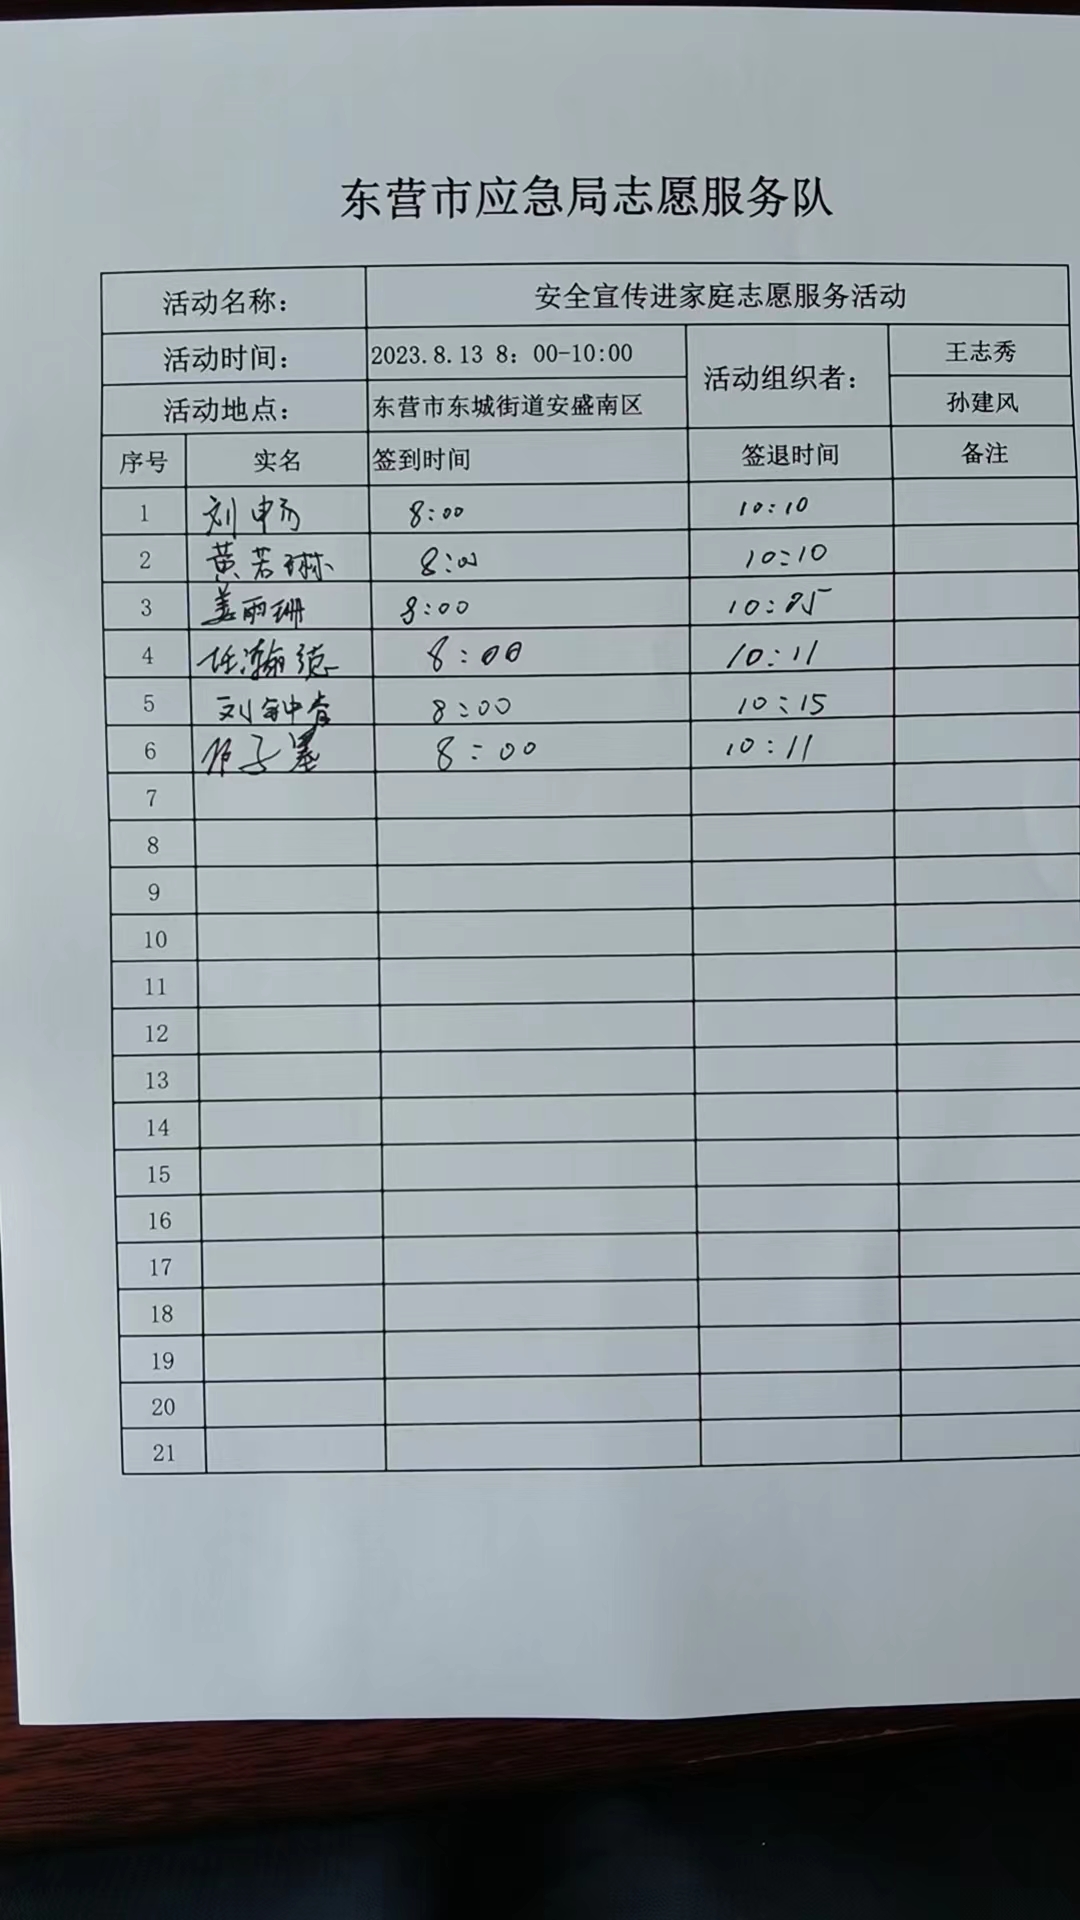 东营市应急局志愿服务队
活动名称： 安全宣传进家庭志愿服务活动
活动时间： 2023.8.13 8：00-10:00 活动组织者： 王志秀
活动地点： 东营市东城街道安盛南区 孙建风
序号 实名 签到时间 签退时间 备注
1 刘畅 8:00 10:10
2 黄若琳 8:00 10:10
3 姜丽珊 8:00
4 任瀚德 8:00 10:11
5 刘钟 8:00 10:15
6 8:00 10:11
7
8
9
10
11
12
13
14
15
16
17
18
19
20
21